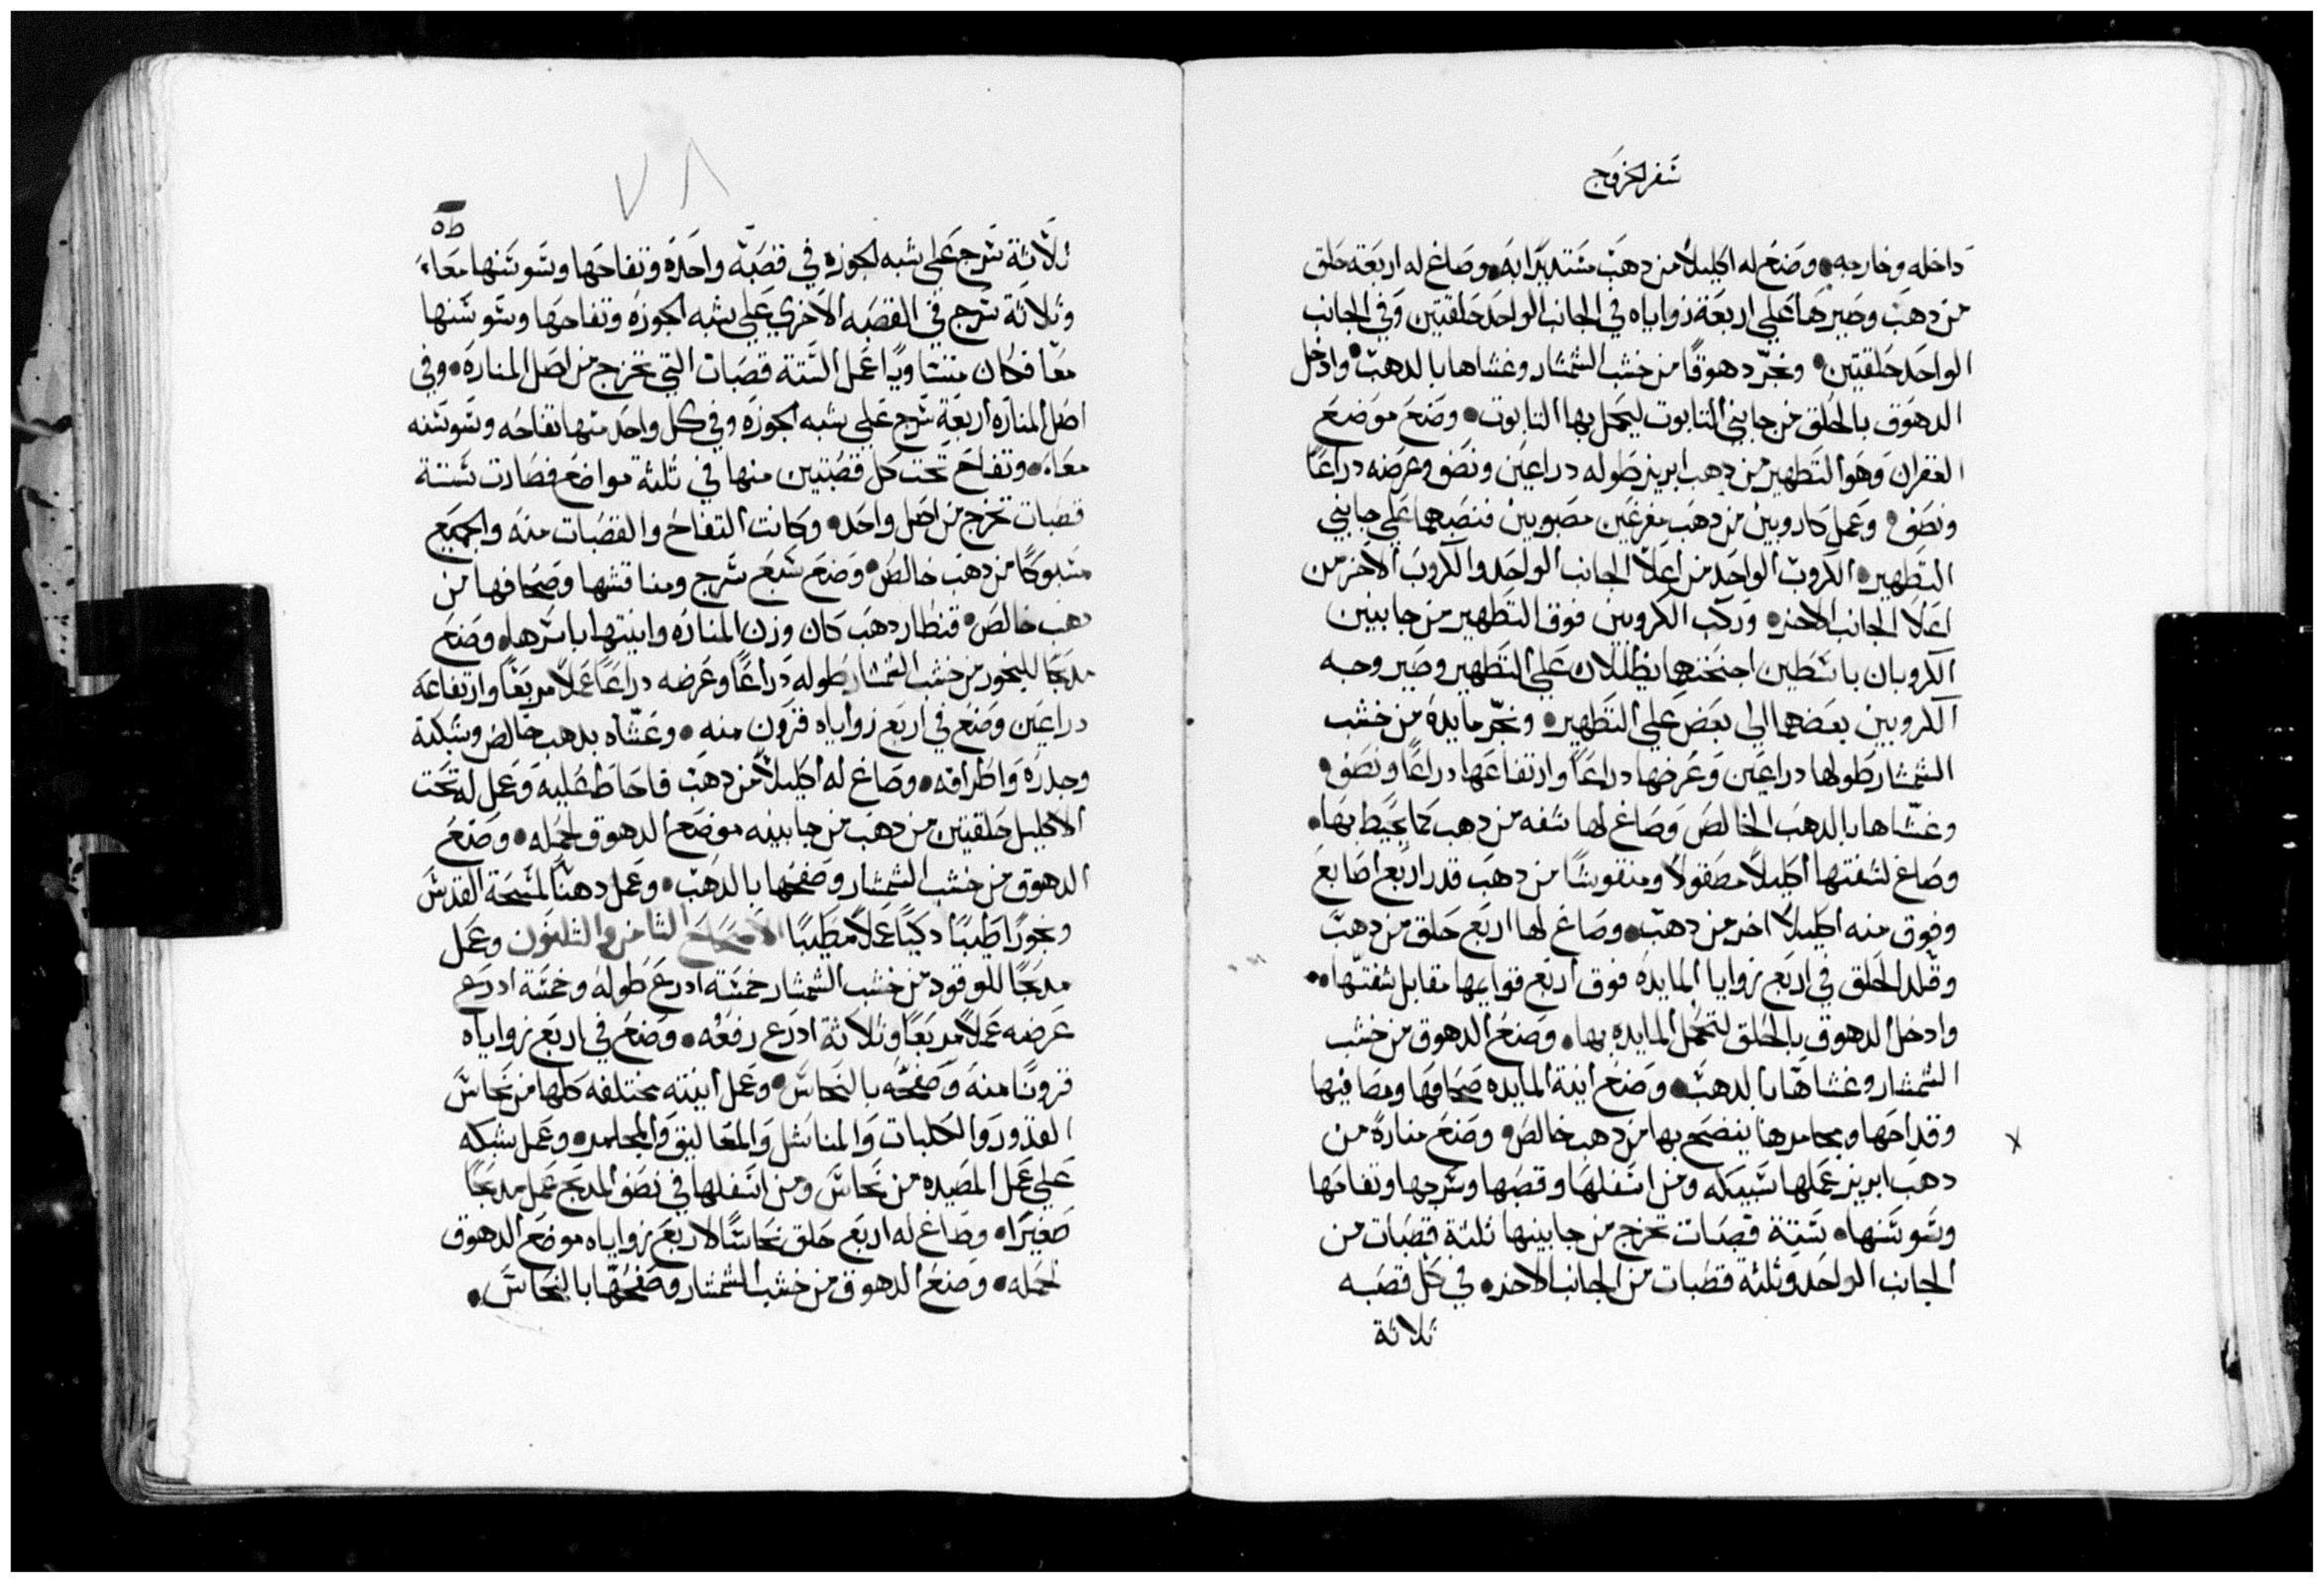 سفر الخروج
داخله وخارجه • وصنع له اكليلاً من دهب مستديرًا به • وصاغ له اربعة حلق
من دهب وصيرها على اربعة زواياه في الجانب الواحد حلقتين وفي الجانب
الواحد حلقتين • ونجّر دهوقًا من خشب الشمشار وغشاها بالدهب • وادخل
الدهوق بالحلق من جابني التابوت ليحمل بها التابوت • وصنع موضع
الغفران وهو التطهير من دهب ابريز طوله دراعين ونصف وعرضه دراعًا
ونصف • وعمل كاروبين من دهب مفرغين مصبوبين فنصبهما على جابني
التطهير • الكروب الواحد من اعلا الجانب الواحد والكروب الاخر من
اعلا الجانب الاخر • وركب الكروبين فوق التطهير من جابنين
الكروبان باسطين اجنحتهما يظللان على التطهير وصير وجه
الكروبين بعضهما الي بعض على التطهير • ونجّر مايدة من خشب
الشمشار طولها دراعين وعرضها دراعًا وارتفاعها دراعًا ونصف •
وغشّاها بالدهب الخالص وصاغ لها شفه من دهب كما يحيط بها •
وصاغ لشفتها اكليلاً مصقولاً ومنقوشًا من دهب قدر اربع اصابع
وفوق منه اكليلاً اخر من دهب • وصاغ لها اربع حلق من دهب
وقلد الحلق في اربع زوايا المايده فوق اربع قوايمها مقابل شفتها •
وادخل الدهوق بالحلق لتحمل المايده بها • وصنع الدهوق من خشب
الشمشار وغشاها بالدهب • وصنع انية المايده صحافها ومصافيها
وقداحها ومجامرها ينضح بها من دهب خالص • وصنع منارة من
دهب ابريز عملها سبيكه ومن اسفلها وقصبها وسرجها وتفاحها
وسوسنها • ستة قصبات تخرج من جابينها ثلثة قصبات من
الجانب الواحد وثلثة قصبات من الجانب الاخر • في كل قصبه
ثلاثة
٧٨
ثلاثة سرج على شبه الجوزه في قصبة واحدة وتفاحها وسوسنها معًا •
وثلاثة سرج في القصبه الاخري على شبه الجوزه وتفاحها وسوسنها
معًا فكان متساويًا عمل الستة قصبات التي تخرج من اصل المناره • وفي
اصل المناره اربعة سرج على شبه الجوزه وفي كل واحد منها تفاحه وسوسنه
معًا • وتفاح تحت كل قصبتين منها في ثلثة مواضع فصارت ستة
قصبات تخرج من اصل واحد • وكانت التفاح والقصبات منه والجميع
مسبوكًا من دهب خالص • وصنع سبع سرج ومناقشها وصحافها من
دهب خالص • قنطار دهب كان وزن المناره وانيتها باسرها • وصنع
مدبحًا للبخور من خشب الشمشار طوله دراعًا وعرضه دراعًا عملاً مربعًا وارتفاعه
دراعين وصنع في اربع زواياه قرون منه • وغشّاه بدهب خالص وشبكته
وجدره واطرافه • وصاغ له اكليلاً من دهب فاحاط عليه وعمل له تحت
الاكليل حلقتين من دهب من جابينه موضع الدهوق لحمله • وصنع
الدهوق من خشب الشمشار وصفحها بالدهب • وعمل دهنًا لمسحة القدس
وبخورًا طيبًا دكيًا عملاً مطيبًا الاصحاح الثامن والثلثون وعمل
مدبحًا للوقود من خشب الشمشار خمسة ادرع طوله وخمسة ادرع
عرضه عملاً مربعًا وثلاثة ادرع رفعه • وصنع في اربع زواياه
قرونًا منه وصفحه بالنحاس • وعمل انيته مختلفه كلها من نحاس
القدور والكلبات والمناشل والمعاليق والمجامر • وعمل شبكه
على عمل المصيده من نحاس ومن اسفلها في نصف المدبح عمل مدبحًا
صغيرًا • وصاغ له اربع حلق نحاسًا لاربع زواياه موضع الدهوق
لحمله • وصنع الدهوق من خشب الشمشار وصفحها بالنحاس •